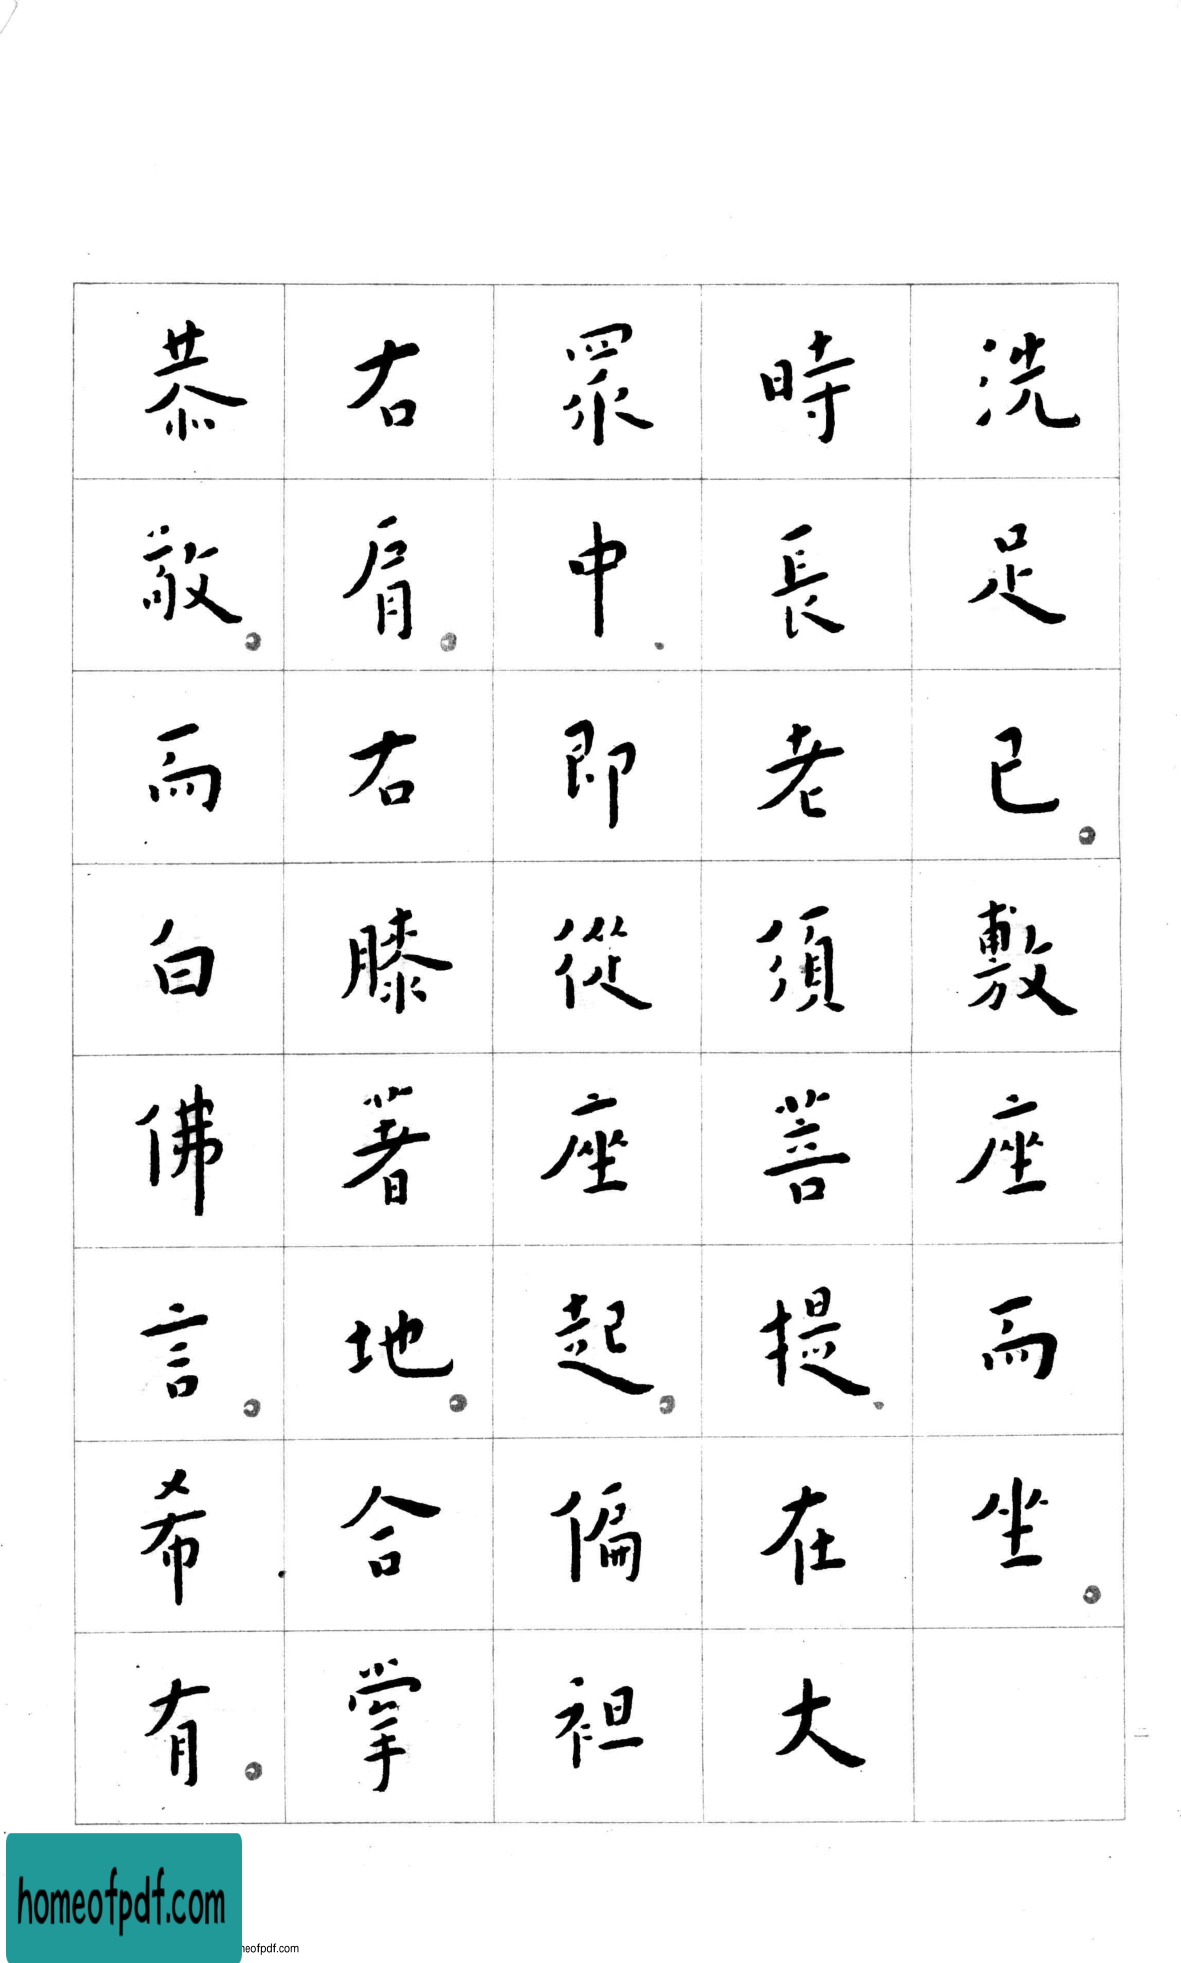 洗足已。敷座而坐。
時長老須菩提、在大
眾中、即從座起。偏袒
右肩。右膝著地。合掌
恭敬。而白佛言。希有。
二
homeofpdf.com
neofpdf.com